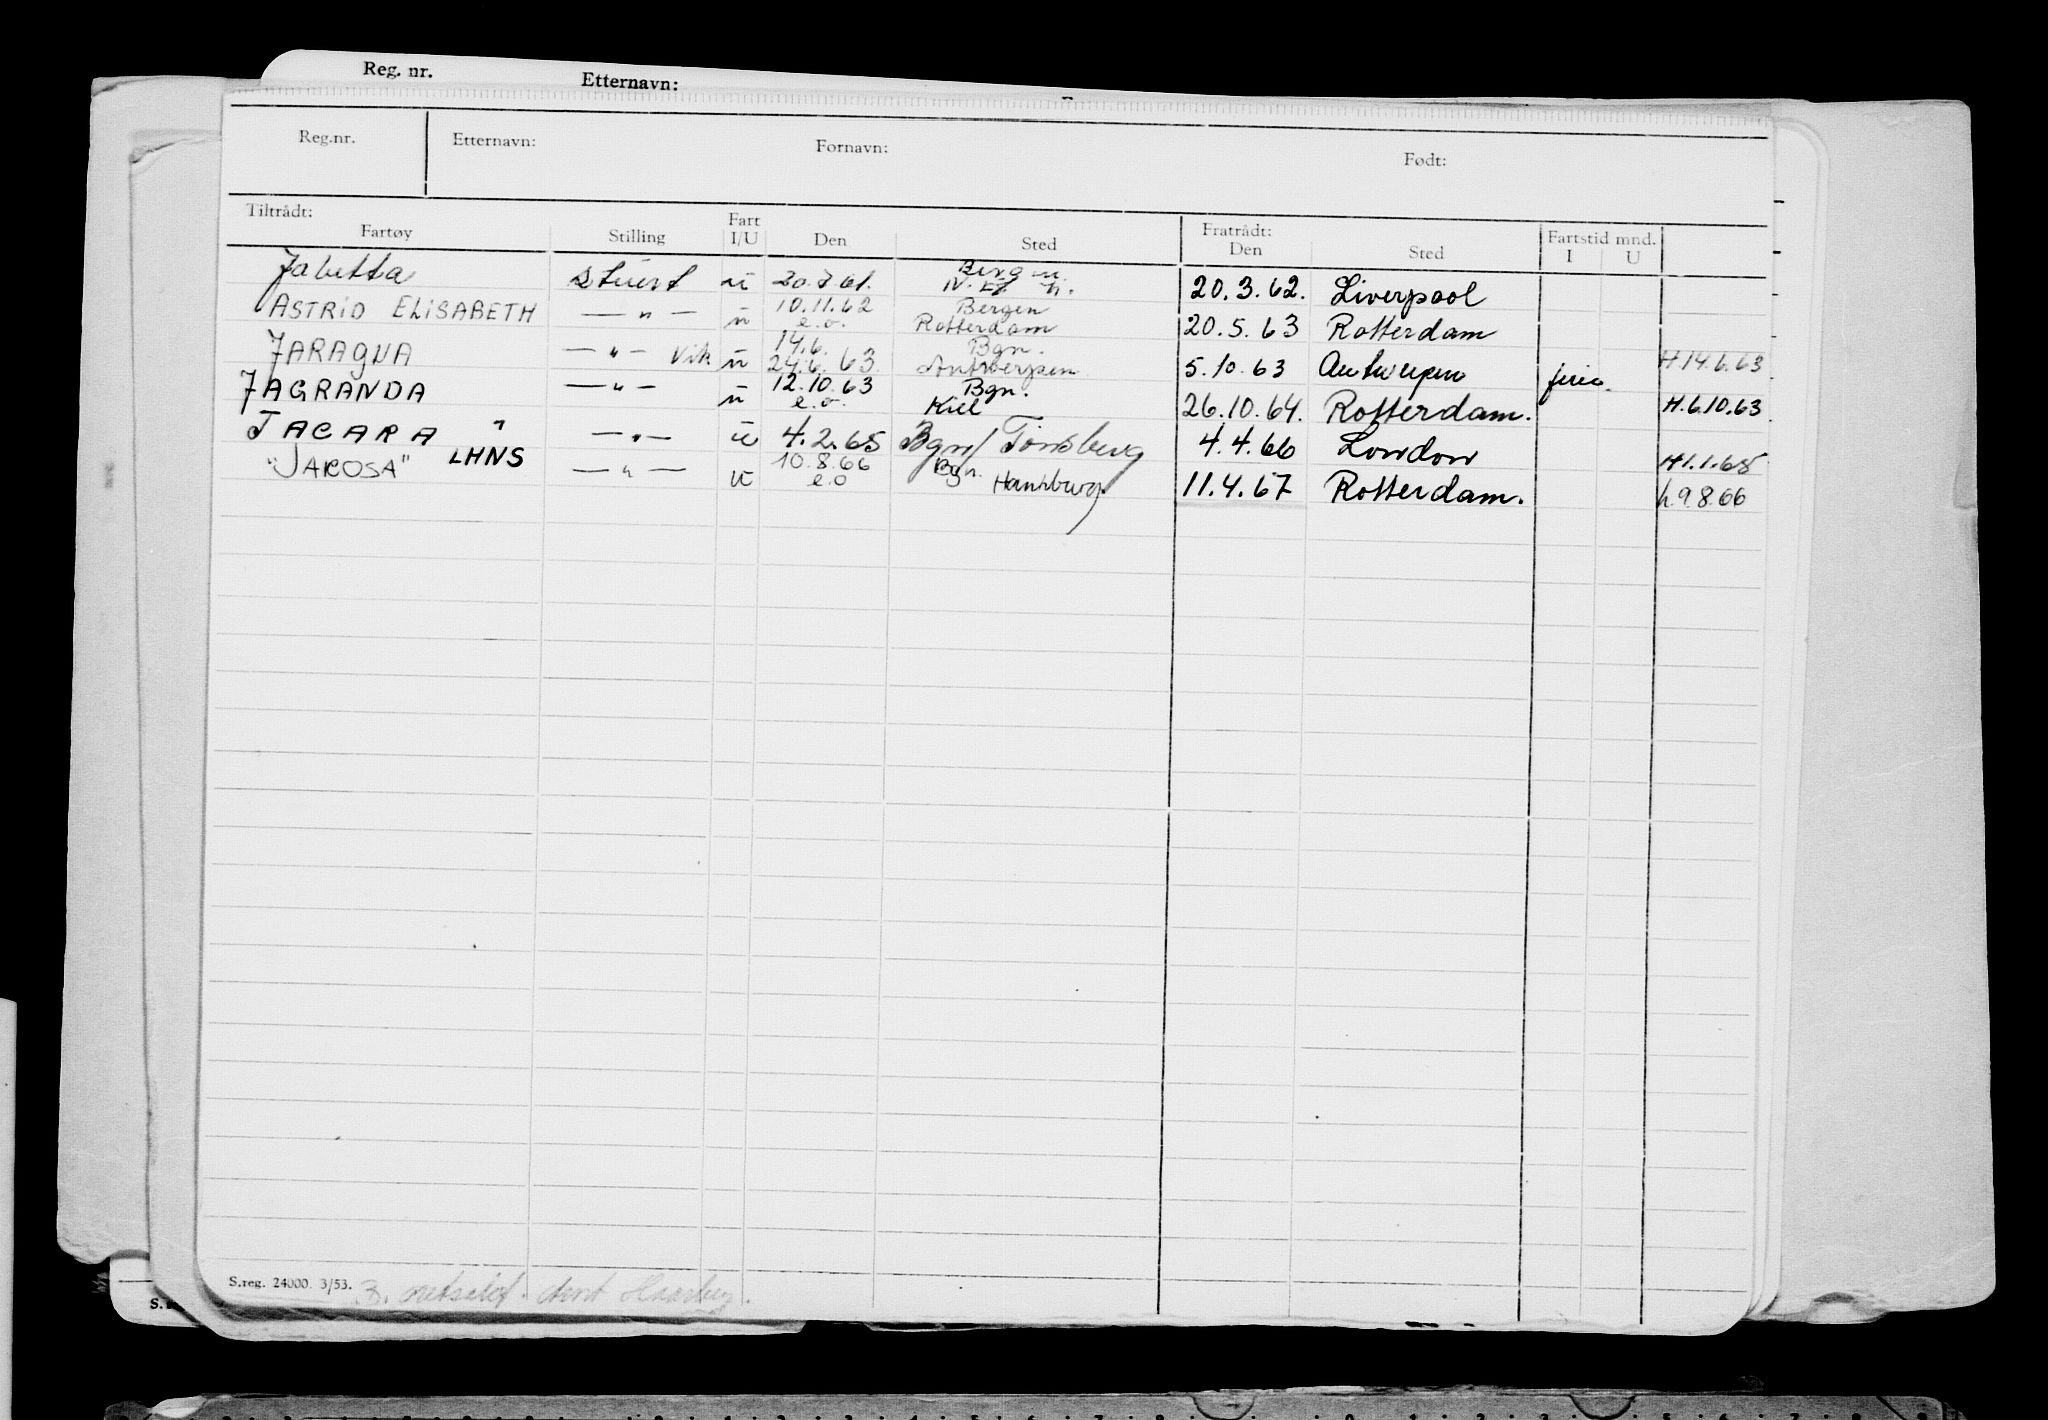 Reg. nr. Etternavn:
Reg.nr. Etternavn: Fornavn: Født:
Tiltrådt: Fratrådt: Fartstid mnd.
Fartøy Stilling Fart I/U Den Sted Den Sted I U
Jabetta Stuert u 20.7.61. Bergen 20.3.62. Liverpool
ASTRID ELISABETH — " — u 10.11.62 e.o. Bergen Rotterdam 20.5.63 Rotterdam
JARAGUA — " — vik u 14.6. 24.6.63 Bgn. Antwerpen 5.10.63 Antwerpen ferie. H.14.6.63
JAGRANDA — " — u 12.10.63 e.o. Bgn. Kiel 26.10.64. Rotterdam. H.6.10.63
JACARA " — " — u 4.2.65 Bgn/Tønsberg 4.4.66 London H1.1.65
"JAROSA" LHNS — " — u 10.8.66 e.o Bgn. Hamburg. 11.4.67 Rotterdam. h.9.8.66
S.reg. 24000. 3/53.